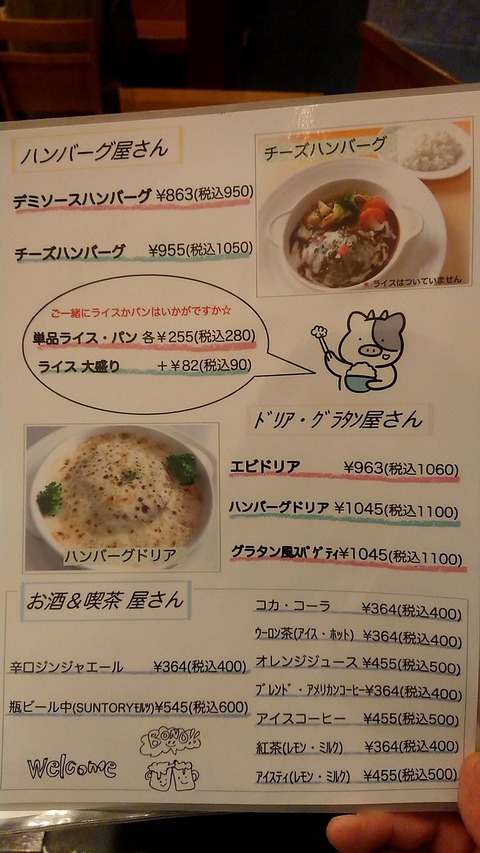 ハンバーグ屋さん
デミソースハンバーグ ¥863(税込950)
チーズハンバーグ ¥955(税込1050)
チーズハンバーグ
* ライスはついていません
ご一緒にライスかパンはいかがですか☆
単品ライス・パン 各¥255(税込280)
ライス 大盛り +¥82(税込90)
ドリア・グラタン屋さん
エビドリア ¥963(税込1060)
ハンバーグドリア ¥1045(税込1100)
グラタン風スパゲティ¥1045(税込1100)
ハンバーグドリア
お酒&喫茶 屋さん
辛口ジンジャエール ¥364(税込400)
瓶ビール中(SUNTORYモルツ)¥545(税込600)
Welcome
コカ・コーラ ¥364(税込400)
ウーロン茶(アイス・ホット) ¥364(税込400)
オレンジジュース ¥455(税込500)
ブレンド・アメリカンコーヒー¥364(税込400)
アイスコーヒー ¥455(税込500)
紅茶(レモン・ミルク) ¥364(税込400)
アイスティ(レモン・ミルク) ¥455(税込500)